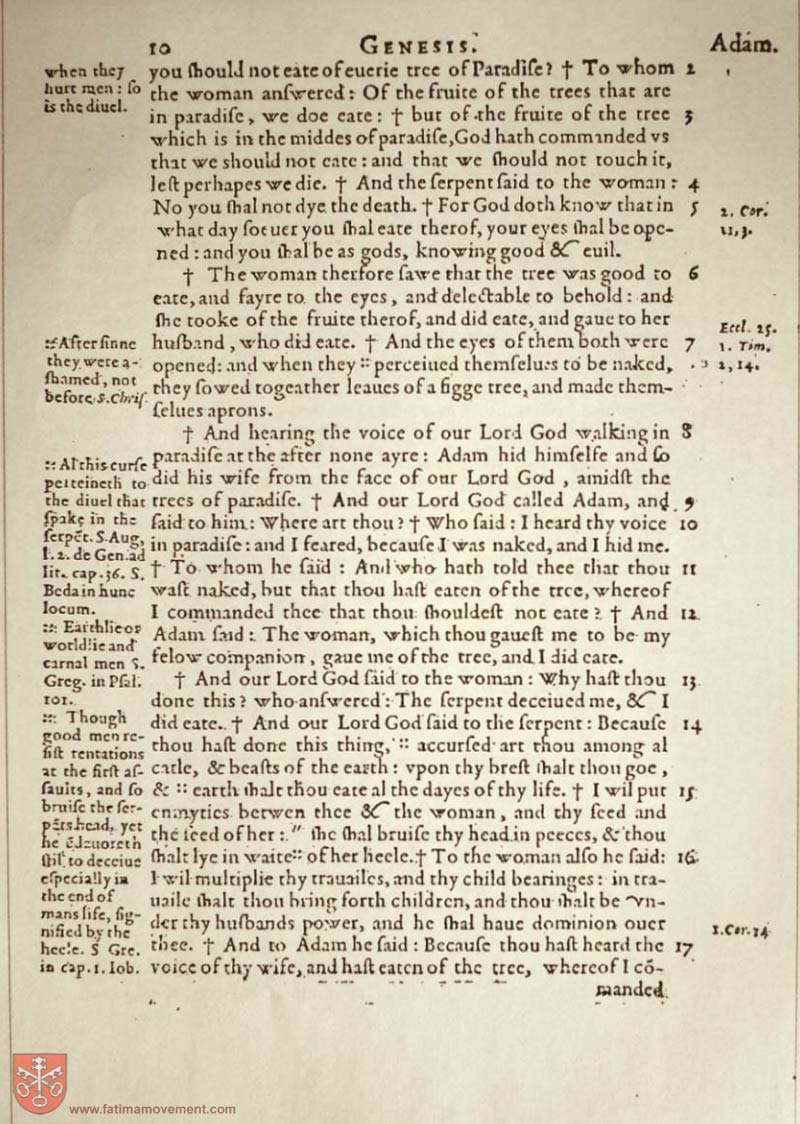 10 GENESIS. Adam.
when they
hurt men : so
is the diuel.
you ſhould not eate of euerie tree of Paradiſe? † To whom 2
the woman anſwered: Of the fruite of the trees that are
in paradiſe, we doe eate: † but of the fruite of the tree 3
which is in the middes of paradiſe, God hath commanded vs
that we ſhould not eate: and that we ſhould not touch it,
leſt perhapes we die. † And the ſerpent ſaid to the woman: 4
No you ſhal not dye the death. † For God doth know that in 5
what day ſoeuer you ſhal eate therof, your eyes ſhal be ope-
ned: and you ſhal be as gods, knowing good & euil.
2. Cor.
11,3.
† The woman therfore ſawe that the tree was good to 6
eate, and fayre to the eyes, and delectable to behold: and
ſhe tooke of the fruite therof, and did eate, and gaue to her
huſband, who did eate. † And the eyes of them both were 7
opened: and when they :: perceiued themſelues to be naked,
they ſowed togeather leaues of a figge tree, and made them-
ſelues aprons.
Eccl. 25.
1. Tim.
2,14.
:: After ſinne
they were a-
ſhamed, not
before. S. Chriſ.
† And hearing the voice of our Lord God walking in 8
paradiſe at the after none ayre: Adam hid himſelfe and ſo
did his wife from the face of our Lord God, amidſt the
trees of paradiſe. † And our Lord God called Adam, and 9
ſaid to him: Where art thou? † Who ſaid: I heard thy voice 10
in paradiſe: and I feared, becauſe I was naked, and I hid me.
† To whom he ſaid: And who hath told thee that thou 11
waſt naked, but that thou haſt eaten of the tree, whereof
I commanded thee that thou ſhouldeſt not eate? † And 12
Adam ſaid: The woman, which thou gaueſt me to be my
felow companion, gaue me of the tree, and I did eate.
:: Al this curſe
perteineth to
the diuel that
ſpake in the
ſerpēt. S. Aug.
l. 2. de Gen. ad
lit. cap. 36. S.
Beda in hunc
locum.
:: Earthlie or
worldlie and
carnal men S.
Greg. in Pſal.
101.
† And our Lord God ſaid to the woman: Why haſt thou 13
done this? who anſwered: The ſerpent deceiued me, & I
did eate. † And our Lord God ſaid to the ſerpent: Becauſe 14
thou haſt done this thing, :: accurſed art thou among al
catle, & beaſts of the earth: vpon thy breſt ſhalt thou goe,
& :: earth ſhalt thou eate al the dayes of thy life. † I wil put 15
enmyties betwen thee & the woman, and thy ſeed and
the ſeed of her: " ſhe ſhal bruiſe thy head in peeces, & thou
ſhalt lye in waite :: of her heele. † To the woman alſo he ſaid: 16
I wil multiplie thy trauailes, and thy child bearinges: in tra-
uaile ſhalt thou bring forth children, and thou ſhalt be vn-
der thy huſbands power, and he ſhal haue dominion ouer
thee. † And to Adam he ſaid: Becauſe thou haſt heard the 17
voice of thy wife, and haſt eaten of the tree, whereof I cō-
manded
:: Though
good men re-
ſiſt tentations
at the firſt aſ-
ſaults, and ſo
bruiſe the ſer-
pēts head, yet
he ēdeuoreth
ſtil to deceiue
eſpecially in
the end of
mans life, ſig-
nified by the
heele. S Gre.
in cap. 1. Iob.
1. Cor. 14
www.fatimamovement.com